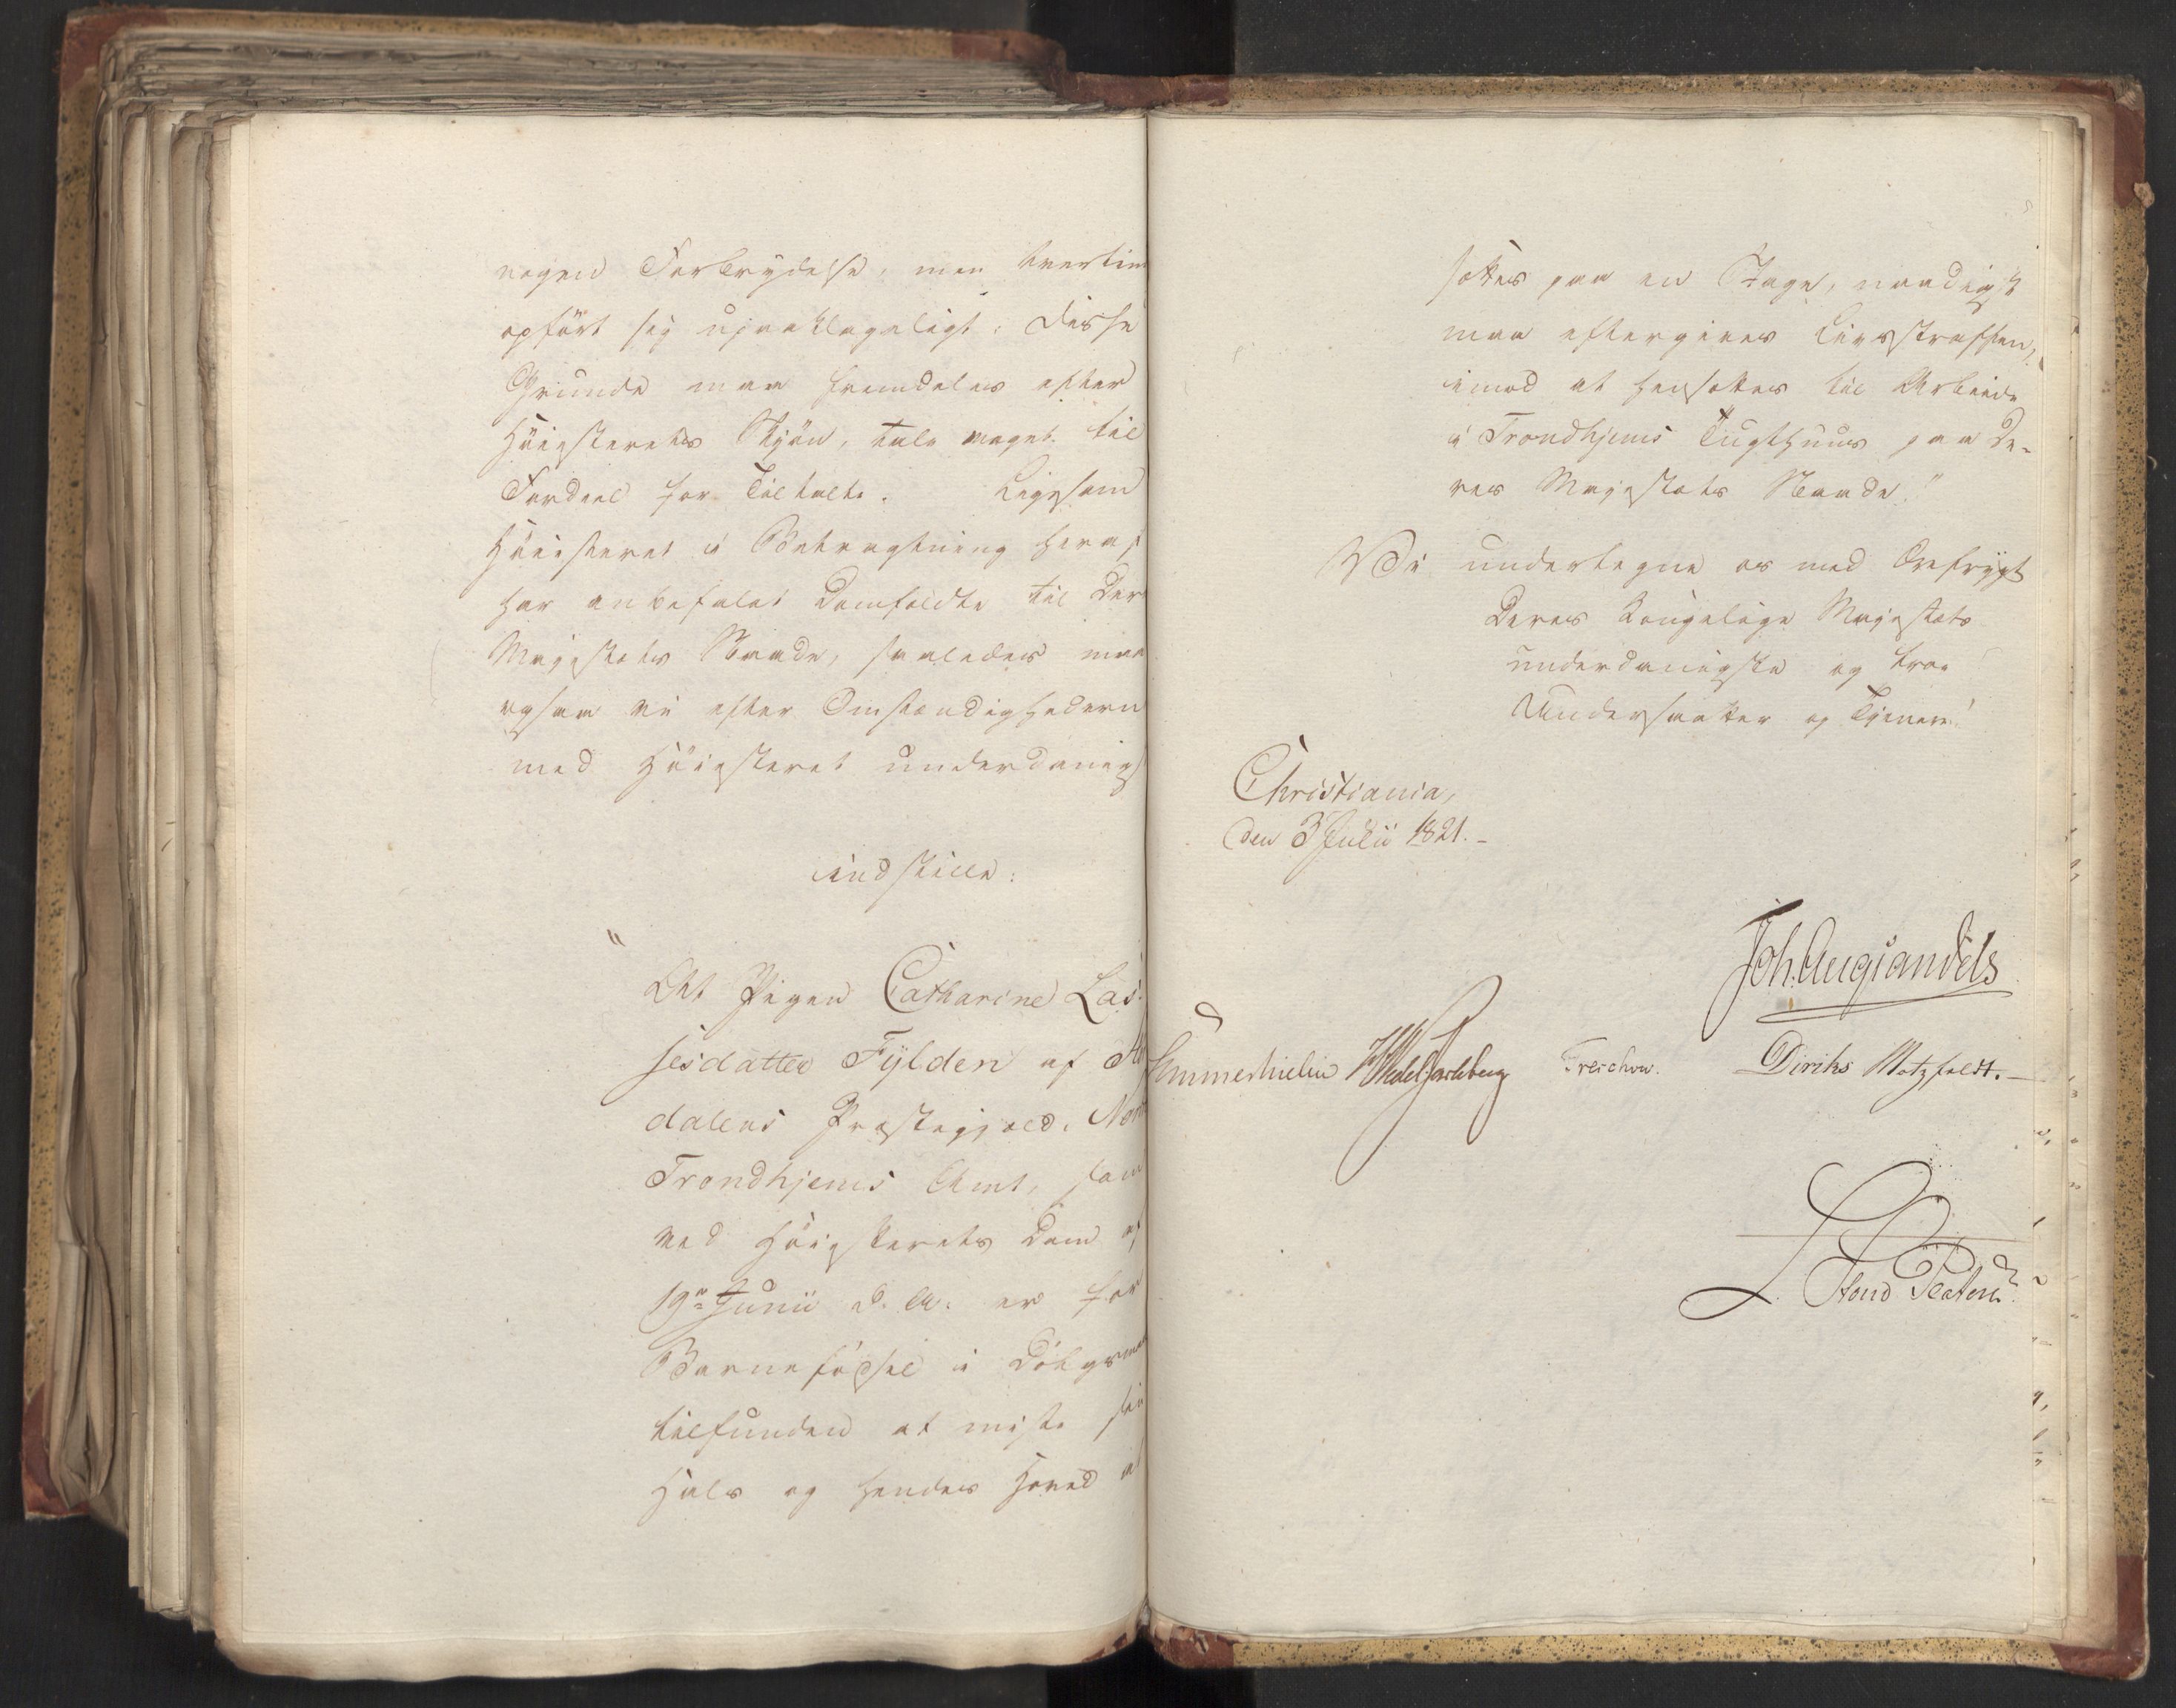 nogen Forbrydelse, men tvertim
opført sig upaaklageligt. Disse
Grunde maae fremdeles efter
Høiesterets Skjøn, tale meget til
Fordeel for Tiltalte. Ligesom
Høiesteret i Betragtning heraf
har anbefalet Domfældte til Der
Majestæts Naade, saaledes maa
ogsaa vi efter Omstændighedern
med Høiesteret underdanigs
indstille:
"At Pigen Catharine Las-
sesdatter Fylderi af
dalens Præstegjæld, Nor
Trondhjems Amt, som
ved Høiesterets Dom af
19de Junii d. A. er for
Barnefødsel i Dølgsmaa
tilfunden at miste sin
Hals og hendes Hoved at
sættes paa en Stage, naadigst
maa eftergives Livsstraffen,
imod at hensættes til Arbeide
i Trondhjems Tugthuus paa De-
res Majestæts Naade."
Vi undertegne os med Ærefrygt
Deres Kongelige Majestæts
underdanigste og troe
Undersaatter og Tjenere!
Christiania,
den 3 Julii 1821.
Joh. Aug. Sandels
Sommerhielm HWedelJarlsberg Treschow. Diriks Motzfeldt.